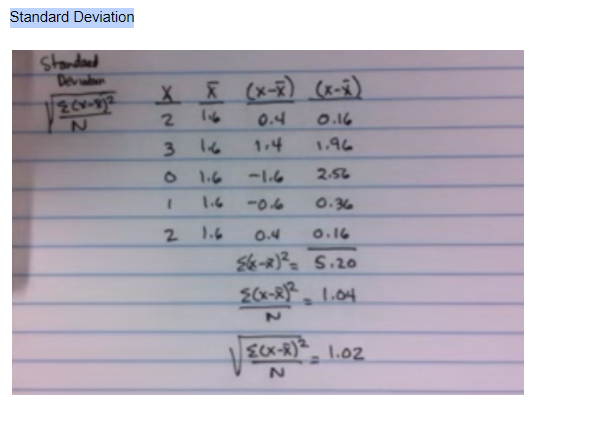 Standard Deviation
Standard
Deviation
√Σ(x-x̄)²
N
X x̄ (x-x̄) (x-x̄)
2 1.6 0.4 0.16
3 1.6 1.4 1.96
0 1.6 -1.6 2.56
1 1.6 -0.6 0.36
2 1.6 0.4 0.16
Σ(x-x̄)² = 5.20
Σ(x-x̄)² = 1.04
N
√Σ(x-x̄)² = 1.02
N